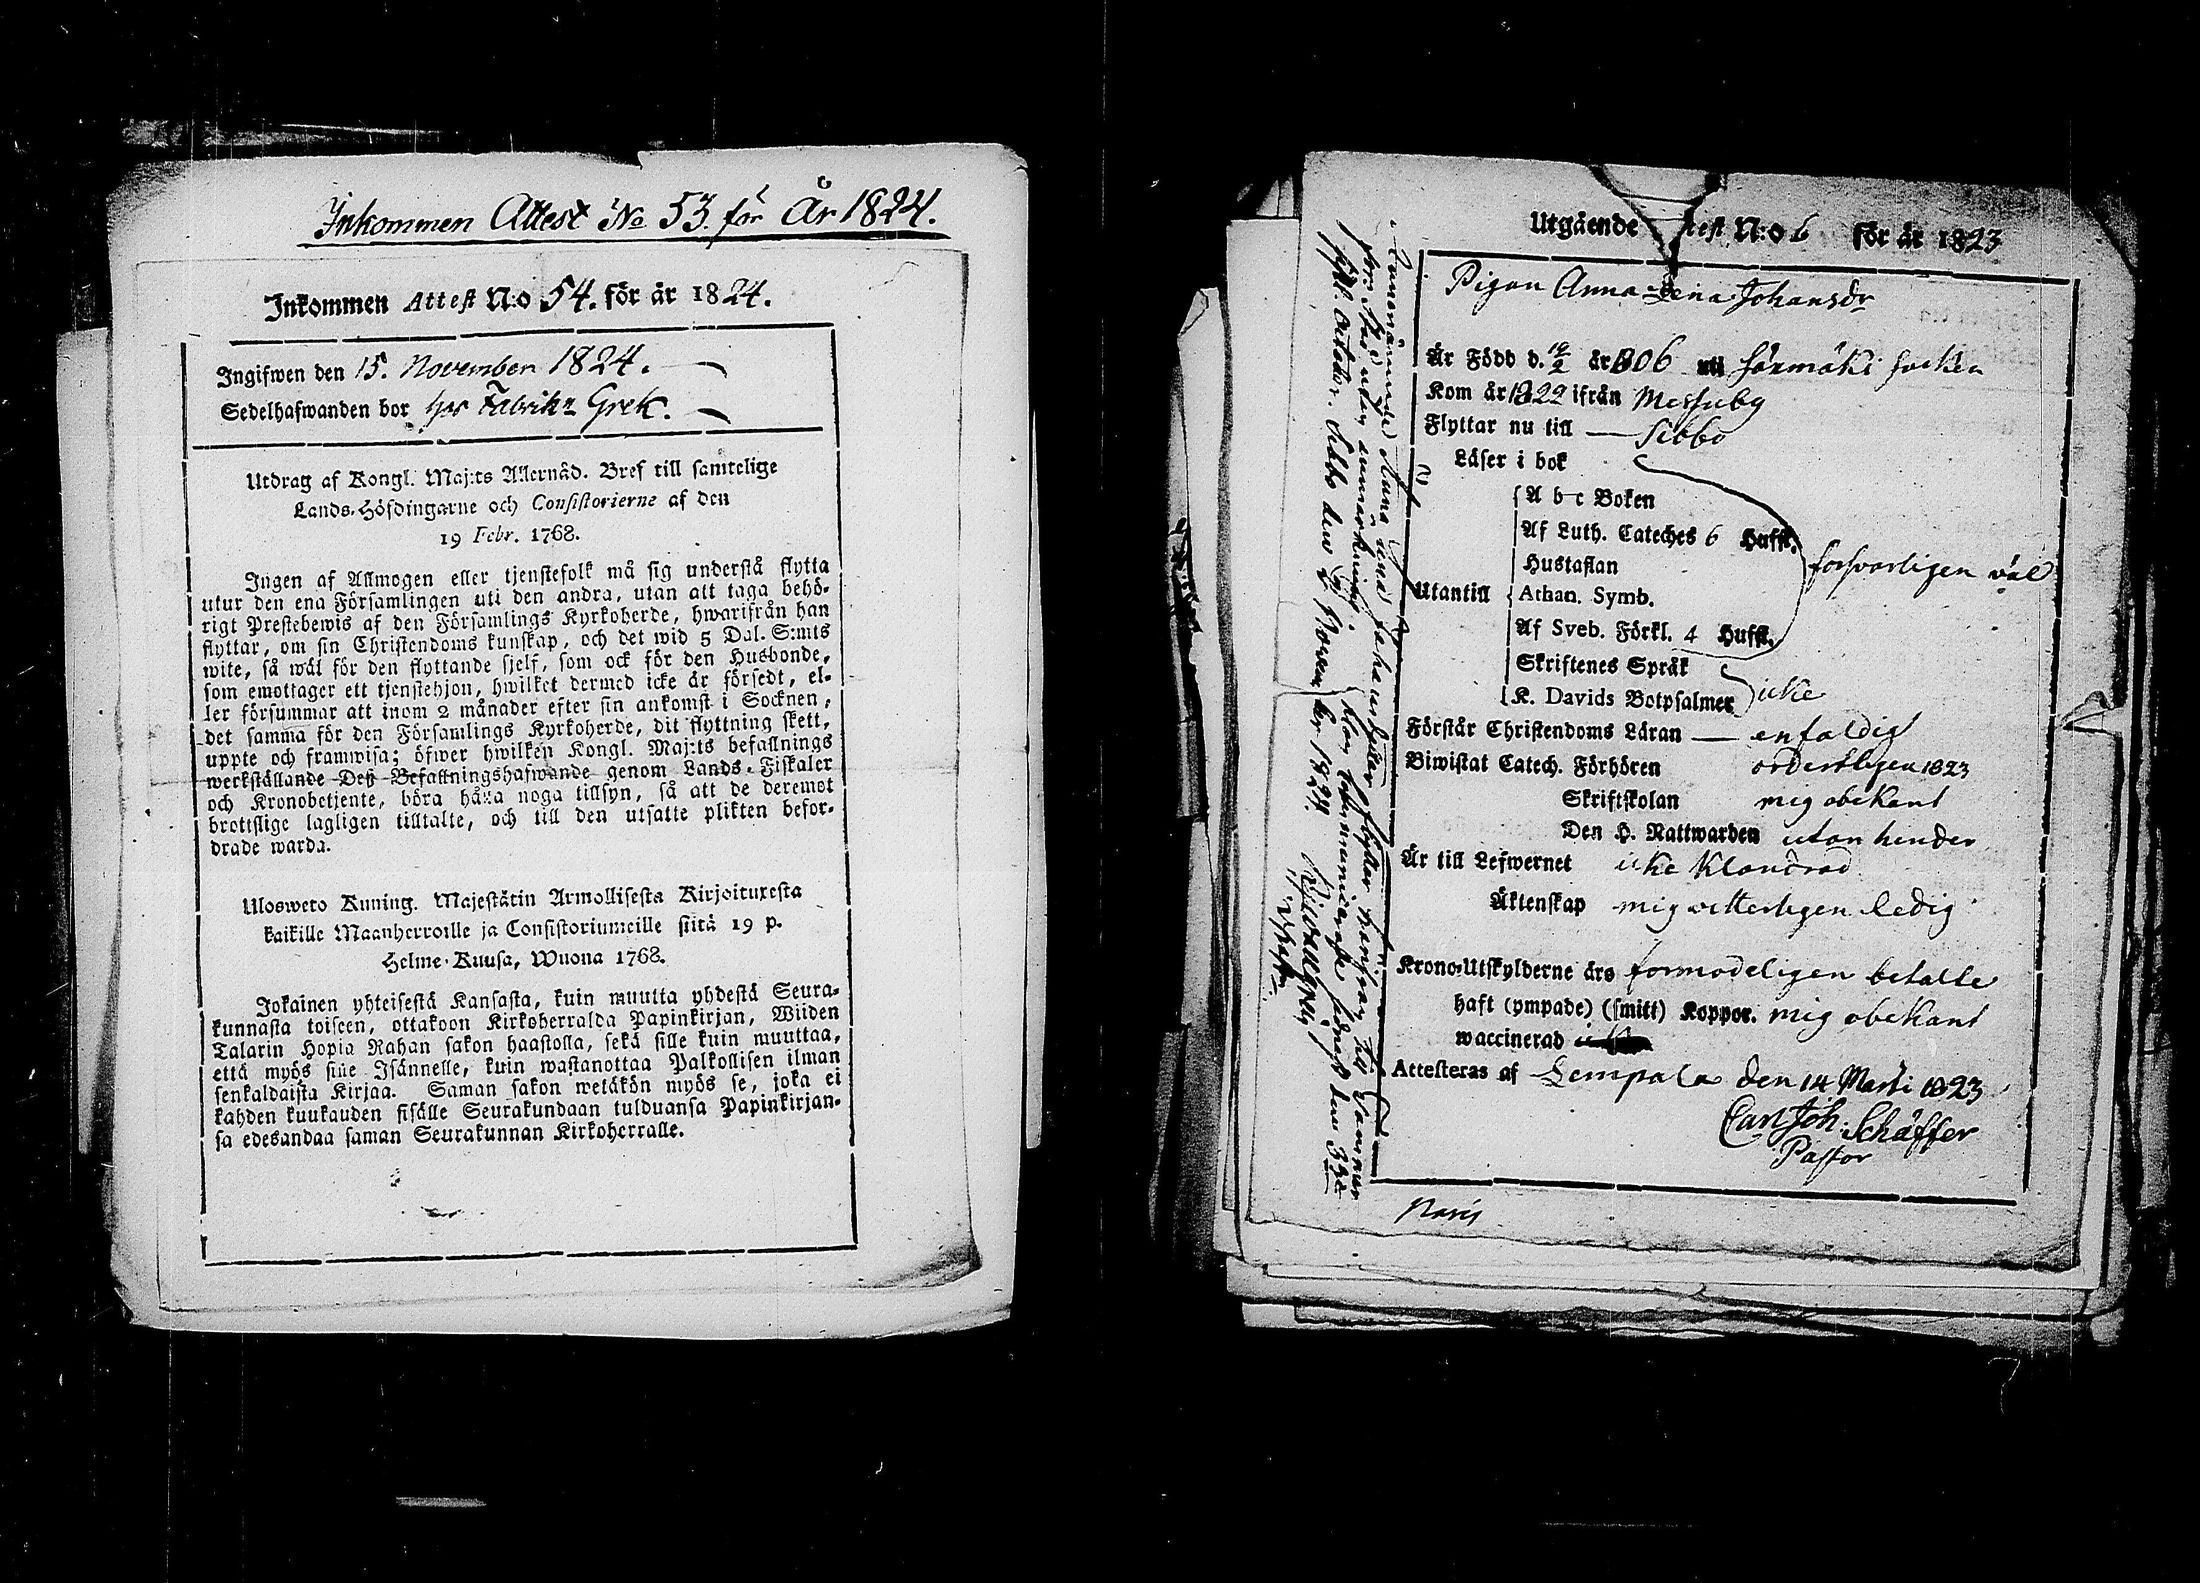 Inkommen Attest No 53. för År 1824.
Inkommen Attest N:o 54. för år 1824.
Ingifwen den 15. November 1824.
Sedelhafwanden bor hos Fabrikr Grek.
Utdrag af Kongl. Maj:ts Allernåd. Bref till samtelige
Lands-Höfdingarne och Consistorierne af den
19 Febr. 1768.
Ingen af Allmogen eller tjenstefolk må sig understå flytta
utur den ena Församlingen uti den andra, utan att taga behö-
rigt Prestebewis af den Församlings Kyrkoherde, hwarifrån han
flyttar, om sin Christendoms kunskap, och det wid 5 Dal. S:mts
wite, så wäl för den flyttande sjelf, som ock för den Husbonde,
som emottager ett tjenstehjon, hwilket dermed icke är försedt, el-
ler försummar att inom 2 månader efter sin ankomst i Socknen,
det samma för den Församlings Kyrkoherde, dit flyttning skett,
uppte och framwisa; öfwer hwilken Kongl. Maj:ts befallnings
werkställande Deß Befallningshafwande genom Lands-Fiskaler
och Kronobetjente, böra hålla noga tillsyn, så att de deremot
brottslige lagligen tilltalte, och till den utsatte plikten befor-
drade warda.
Ulosweto Kuning. Majestätin Armollisesta Kirjoituxesta
kaikille Maanherroille ja Consistoriumeille siitä 19 p.
Helme-Kuusa, Wuona 1768.
Jokainen yhteisestä Kansasta, kuin muutta yhdestä Seura-
kunnasta toiseen, ottakoon Kirkoherralda Papinkirjan, Wiiden
Talarin Hopia Rahan sakon haastolla, sekä sille kuin muuttaa,
että myös sille Isännelle, kuin wastanottaa Palkollisen ilman
senkaldaista Kirjaa. Saman sakon wetäkön myös se, joka ei
kahden kuukauden sisälle Seurakundaan tulduansa Papinkirjan-
sa edesandaa saman Seurakunnan Kirkoherralle.
Utgående test N:o 6 för år 1823
Pigan Anna Lena Johansdr
Är Född d. 19/2 år 1806 uti Säxmäki socken
Kom år 1822 ifrån Messuby
Flyttar nu till — Sibbo
Läser i bok
A b c Boken
Af Luth. Cateches 6 Hufst.
Hustaflan
försvarligen väl
Utantill Athan. Symb.
Af Sveb. Förkl. 4 Hufst.
Skriftenes Språk
K. Davids Botpsalmer icke
Förstår Christendoms Läran — enfaldigt
Biwistat Catech. Förhören ordentligen 1823
Skriftskolan mig obekant
Den H. Nattwarden utan hinder
Är till Lefwernet icke klandrad
Äktenskap mig vitterligen ledig
Krono-Utskylderne äro formodeligen betalte
haft (ympade) (smitt) Koppor. mig obekant
waccinerad
Attesteras af Lempala den 14 Martii 1823
Carl Joh. Schäffer
Pastor